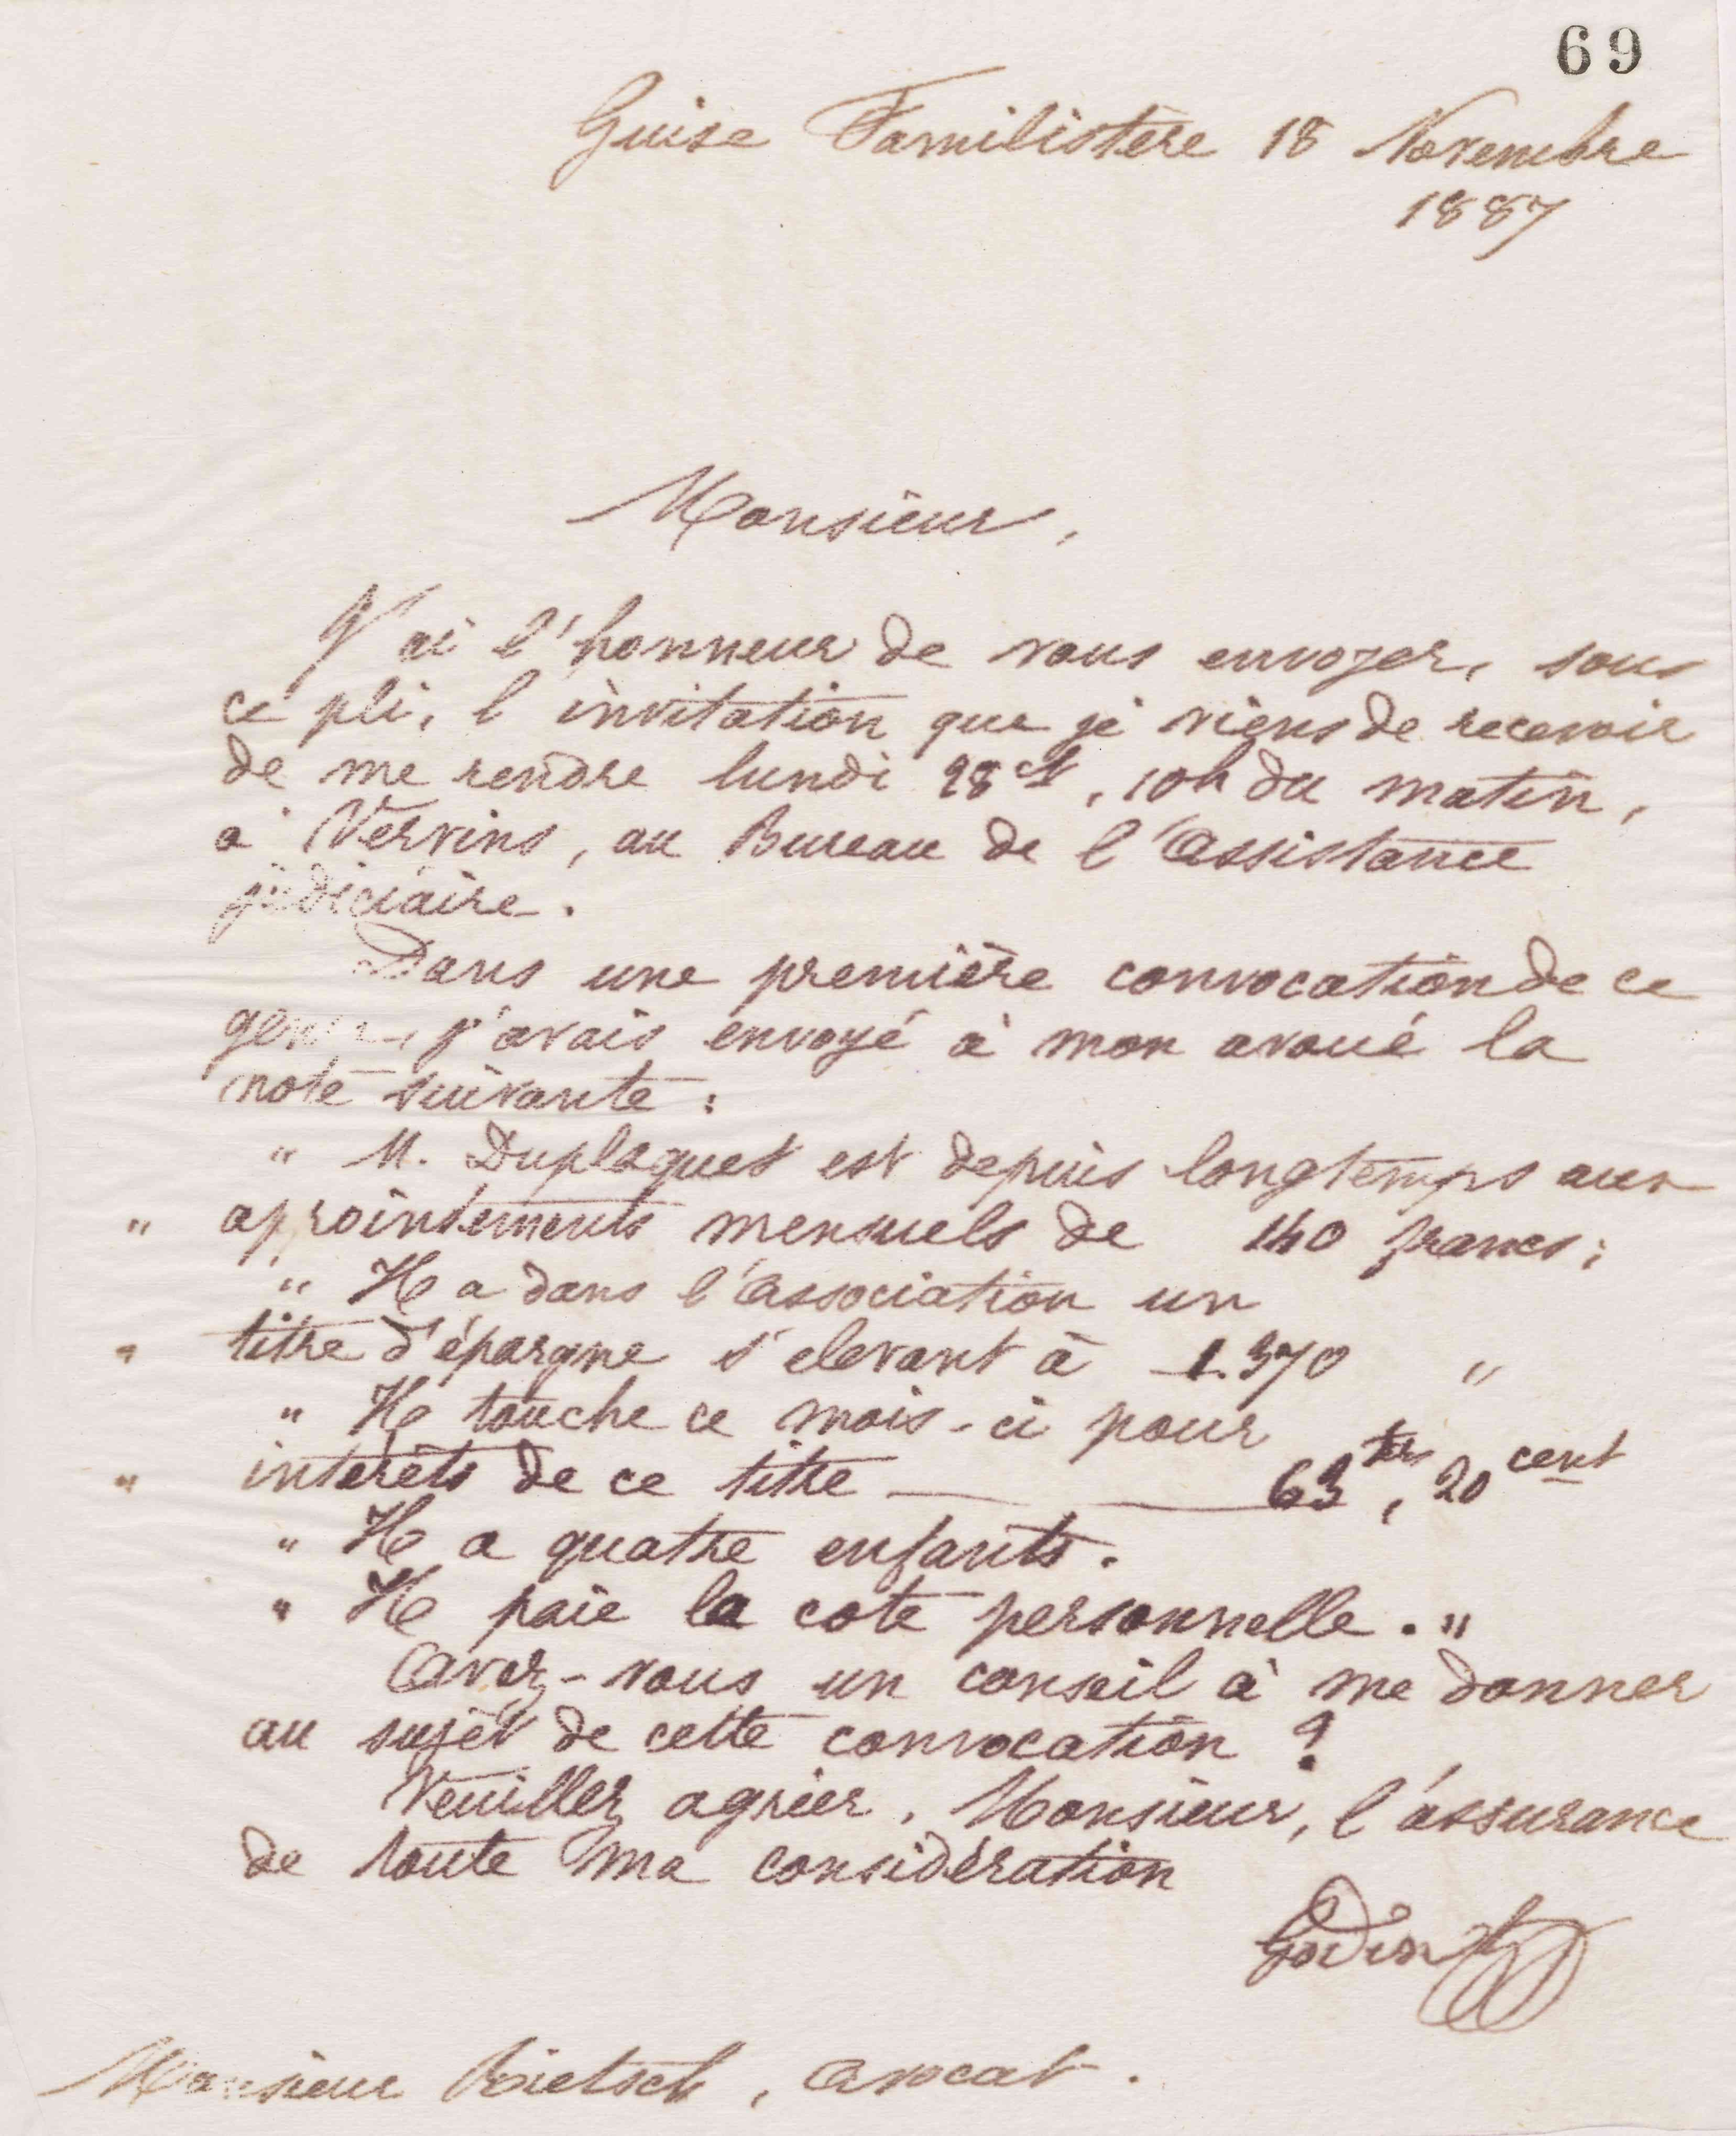 69
Guise Familistère 18 Novembre
1887
Monsieur,
J'ai l'honneur de vous envoyer, sous
ce pli, l'invitation que je viens de recevoir
de me rendre lundi 28 ct, 10h du matin,
à Vervins, au Bureau de l'Assistance
judiciaire.
Dans une première convocation de ce
genre, j'avais envoyé à mon avoué la
note suivante :
" M. Duplaquet est depuis longtemps aux
" appointements mensuels de 140 francs ;
" Il a dans l'association un
" titre d'épargne s'élevant à 1.370 "
" Il touche ce mois-ci pour
" intérêts de ce titre — 63 frs, 20 cent
" Il a quatre enfants.
" Il paie la cote personnelle. "
Avez-vous un conseil à me donner
au sujet de cette convocation ?
Veuillez agréer, Monsieur, l'assurance
de toute ma considération
Godin
Monsieur Rietsch, avocat.